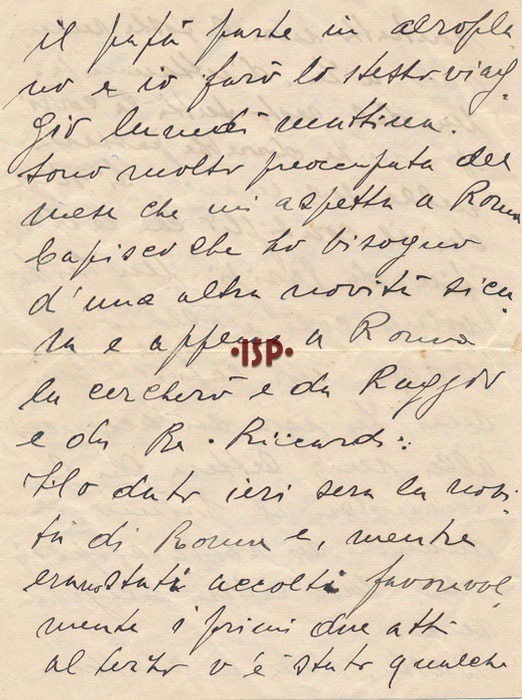 il papà parte in aeropla
no e io farò lo stesso viag-
gio lunedì mattina.
Sono molto preoccupata del
mese che mi aspetta a Roma
Capisco che ho bisogno
d'una altra novità sicu
ra e appena a Roma
·ISP·
la cercherò e da Ruggeri
e da Re. Riccardi.
Ho dato ieri sera la novi-
tà di Roma e, mentre
erano stati accolti favorevol
mente i primi due atti
al terzo v'è stato qualche